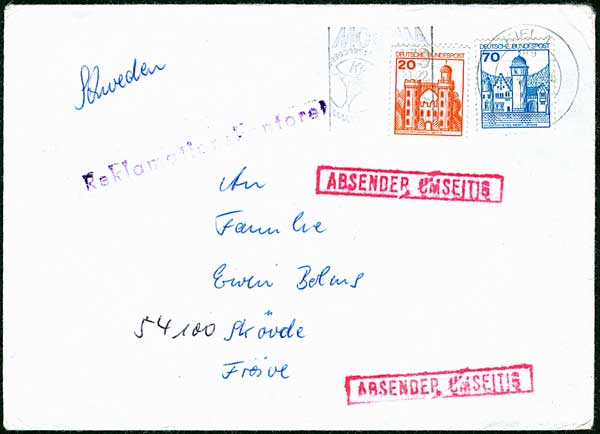 Schweden
20
DEUTSCHE BUNDESPOST
70
DEUTSCHE BUNDESPOST
KIEL
Reklamationskontoret
ABSENDER UMSEITIG
An
Familie
Erwin Bolms
54100 Skövde
Fröive
ABSENDER UMSEITIG